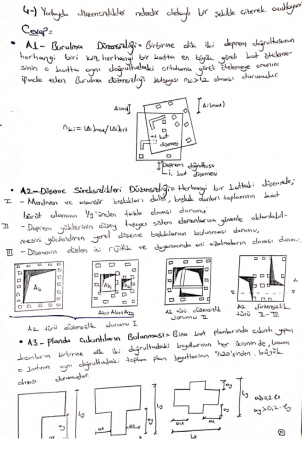 4-) Yatayda düzensizlikler nelerdir detaylı bir şekilde çizerek açıklayınız
Cevap=
• A1- Burulma Düzensizliği= Birbirine dik iki deprem doğrultusunun
herhangi biri için, herhangi bir katta en büyük göreli kat ötelemesinin
o katta aynı doğrultudaki ortalama göreli ötelemeye oranını
ifade eden Burulma Düzensizliği katsayısı olması durumudur
i. kat
döşemesi
Deprem doğrultusu
i. kat döşemesi
• A2-Döşeme Süreksizlikleri Düzensizliği= Herhangi bir kattaki döşemede;
I - Merdiven ve asansör boşlukları dahil, boşluk alanları toplamının kat
brüt alanının 1/3'ünden fazla olması durumu
II - Deprem yüklerinin düşey taşıyıcı sistem elemanlarına güvenle aktarılabilmesini
güçleştiren yerel döşeme boşluklarının bulunması durumu,
III - Döşemenin düzlem içi rijitlik ve dayanımında ani azalmaların olması durumu,
A2 türü düzensizlik durumu I
A2 türü düzensizlik
durumu II
A2 düzensizlik
türü II-III
• A3 - Planda Çıkıntıların Bulunması= Bina kat planlarında çıkıntı yapan
kısımların birbirine dik iki doğrultudaki boyutlarının her ikisinin de, binanın
o katının aynı doğrultudaki toplam plan boyutlarının %20'sinden büyük
olması durumudur.
ax
ay
Lx
Ly